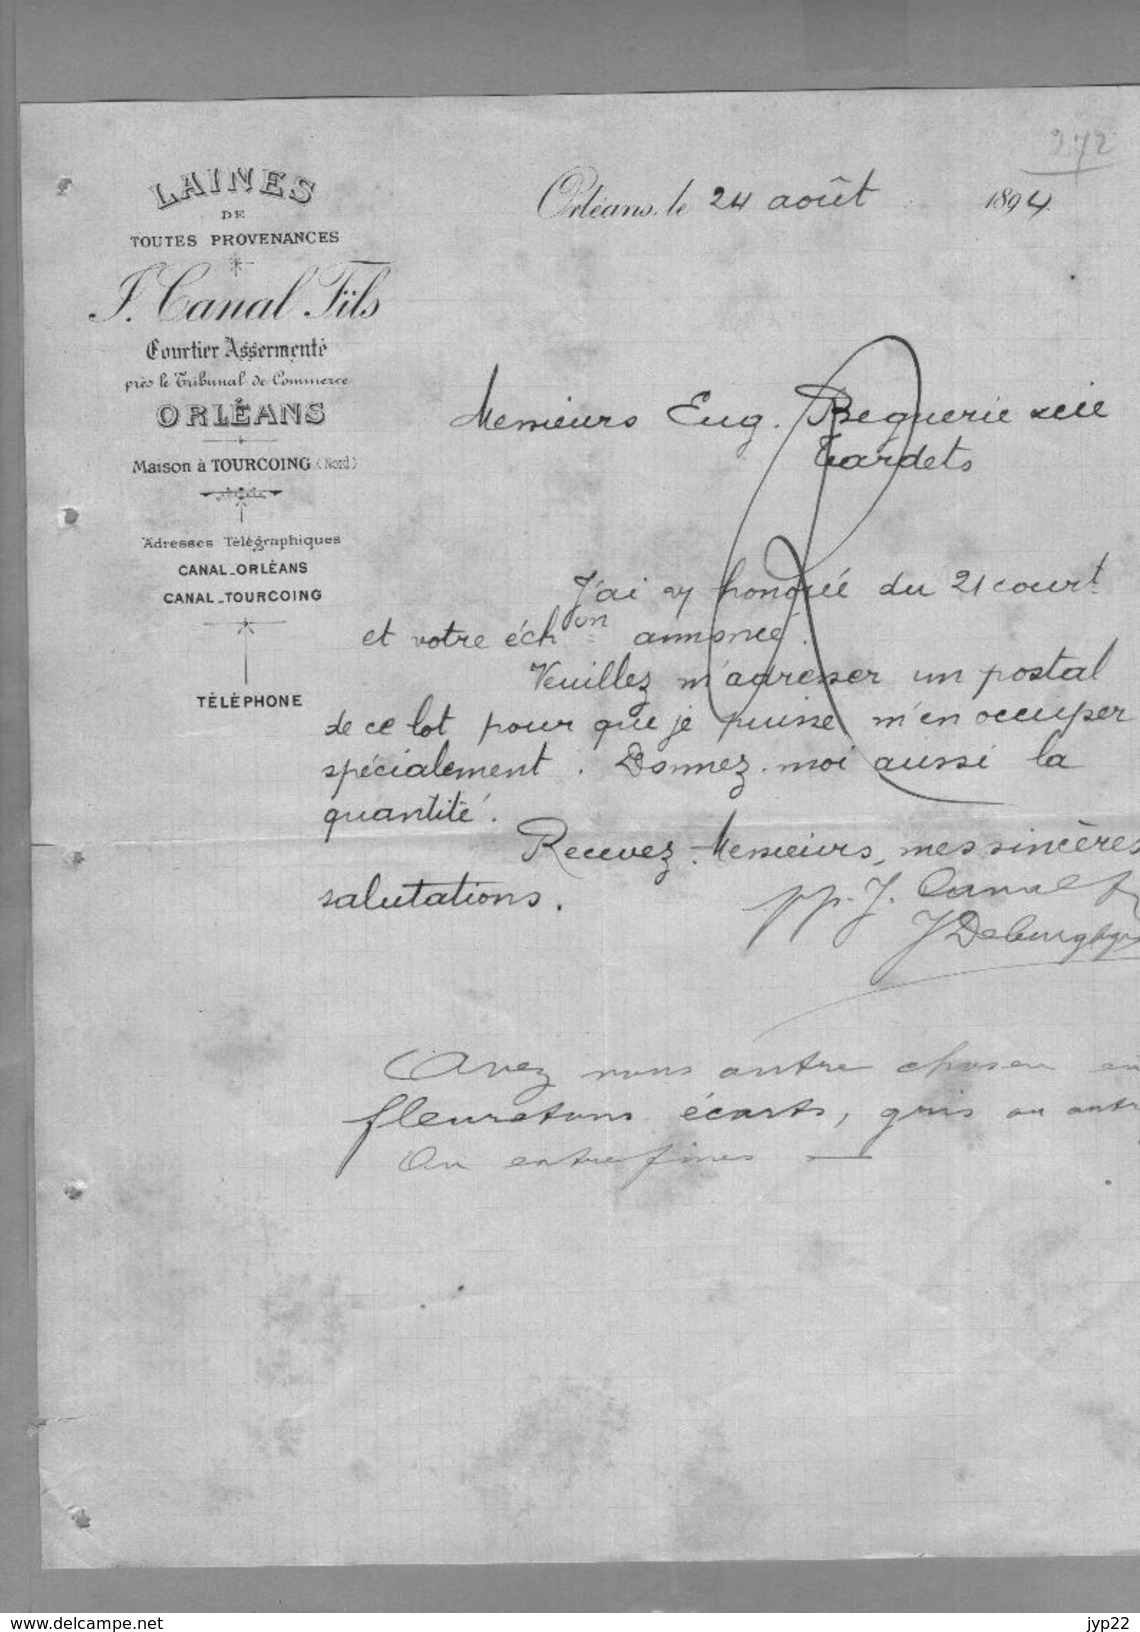 272
LAINES
DE
TOUTES PROVENANCES
J. Canal Fils
Courtier Assermenté
près le Tribunal de Commerce
ORLÉANS
Maison à TOURCOING (Nord)
Adresses Télégraphiques
CANAL_ORLÉANS
CANAL_TOURCOING
TÉLÉPHONE
Orléans, le 24 août 1894
Messieurs Eug. Beguerie
Tardets
J'ai honorée du 21 court
et votre échon annoncé.
Veuillez m'adresser un postal
de ce lot pour que je puisse m'en occuper
spécialement. Donnez-moi aussi la
quantité.
Recevez, Messieurs, mes sincères
salutations.
pp. J. Canal
Avez vous autre chose en
fleuretons écarts, gris ou autr
Ou entrefines —
www.delcampe.net
jyp22